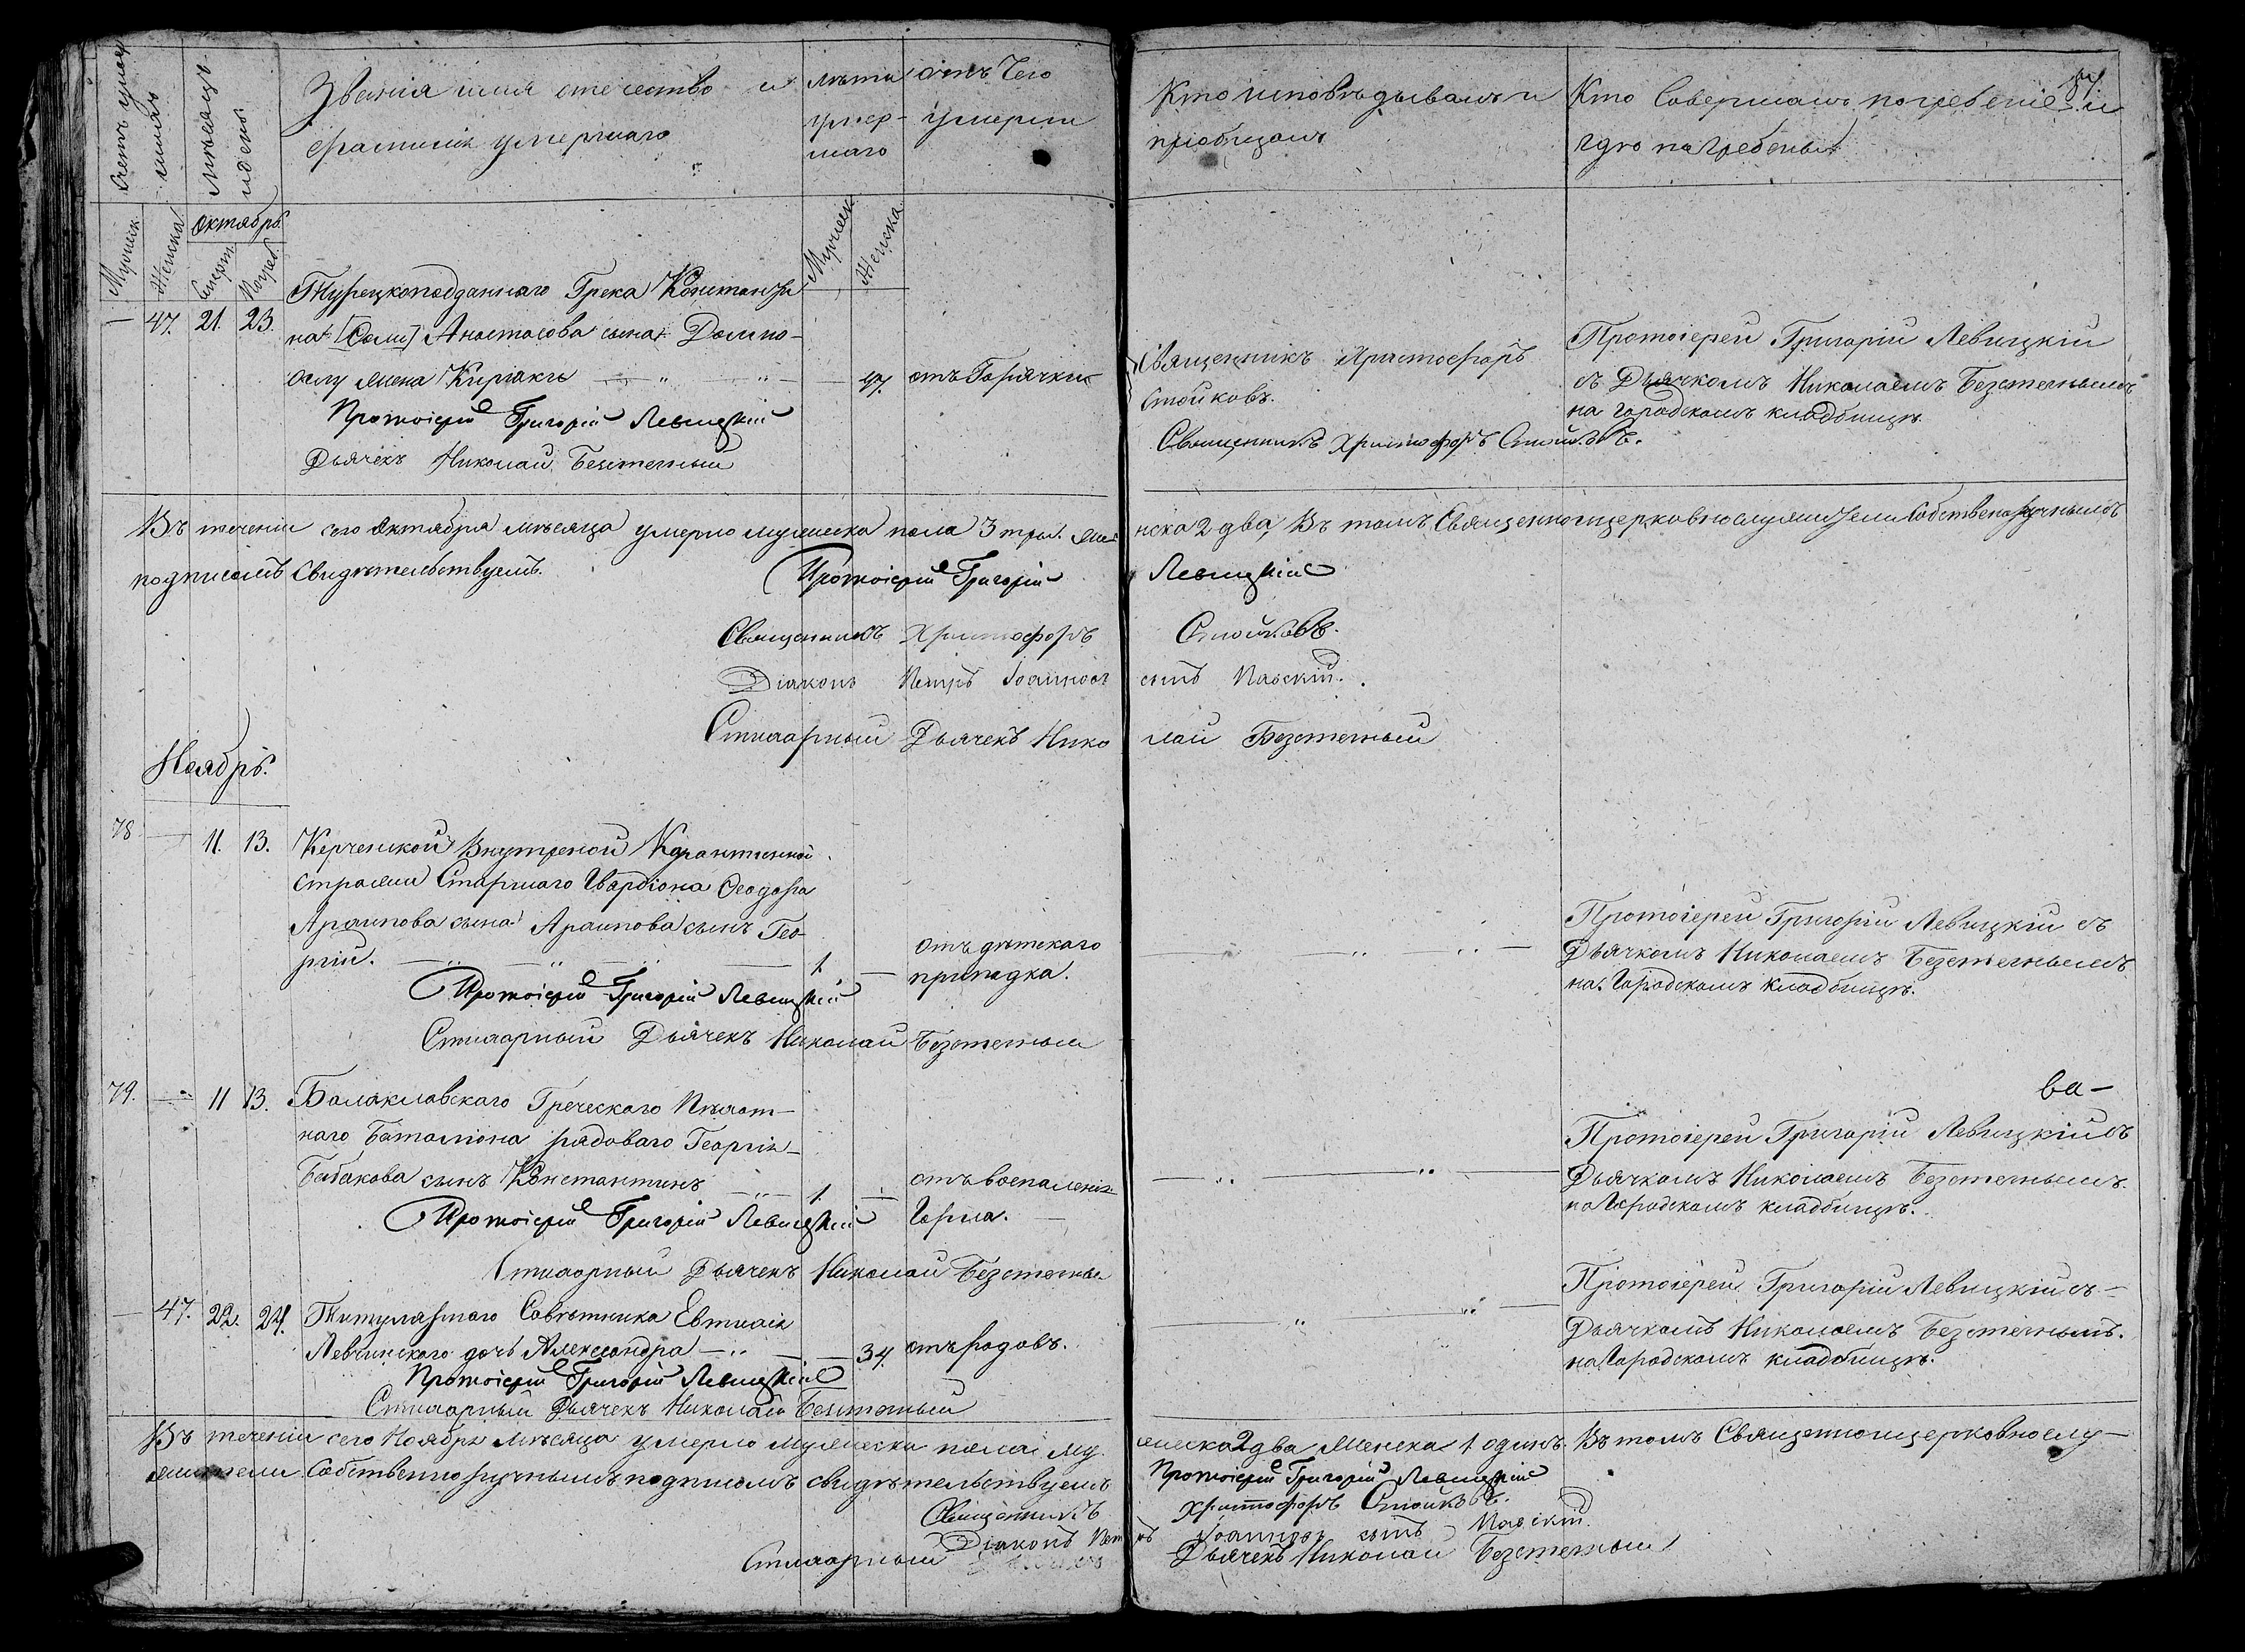 Счетъ умер
шихъ
Мѣсяцъ
и день
Званія имя отечество и
фамилія умершаго
лѣта
умер-
шаго
отъ чего
умерли
Кто исповѣдывалъ и
пріобщалъ
Кто Совершалъ погребеніе и
гдѣ погребены
Мужеск
Женска
Октябрь.
Смерт.
Погреб.
Мужеск.
Женска
— 47. 21. 23.
Турецкоподданнаго Грека Константи
на Анастасова сына
жена Киріаки
47. отъ Горячки
Протоіерей Григорій Левицкій
Дьячекъ Николай Безстечный
Священникъ Христофоръ
Стойковъ.
Священникъ Христофоръ Стойковъ.
Протоіерей Григорій Левицкій
съ Дьячкомъ Николаемъ Безстечнымъ
на городскомъ кладбищѣ.
Въ теченіи сего Октября мѣсяца умерло мужеска пола 3 три. же-
нска 2 два, Въ томъ Священноицерковнослужители Собственоручнымъ
подписомъ Свидѣтельствуемъ.
Протоіерей Григорій Левицкій
Священникъ Христофоръ Стойковъ.
Діаконъ Петръ Іоанновъ сынъ Павскій.
Стихарный Дьячекъ Николай Безстечный
Ноябрь.
78 — 11. 13.
Керченской Внутреной Карантинной
стражи Старшаго Гвардіона Ѳеодора
Араипова сына Араипова сынъ Гео-
ргій. 1. —
отъ дѣтскаго
припадка.
Протоіерей Григорій Левицкій
Стихарный Дьячекъ Николай Безстечный
Протоіерей Григорій Левицкій съ
Дьячкомъ Николаемъ Безстечнымъ
на Городскомъ кладбищѣ.
79. — 11 13.
Балаклавскаго Греческаго Пѣхот-
наго Баталіона рядоваго Георгія
Бабакова сынъ Константинъ 1. —
отъ воспаленія
Горла.
Протоіерей Григорій Левицкій
Стихарный Дьячекъ Николай Безстечный
ва-
Протоіерей Григорій Левицкій съ
Дьячкомъ Николаемъ Безстечнымъ.
на Городскомъ кладбищѣ.
— 47. 22. 24.
Титулярнаго Совѣтника Евтихія
Левчинского дочь Александра — 34.
отъ родовъ.
Протоіерей Григорій Левицкій
Стихарный Дьячекъ Николай Безстечный
Протоіерей Григорій Левицкій съ
Дьячкомъ Николаемъ Безстечнымъ.
на Городскомъ кладбищѣ.
Въ теченіи сего Ноября мѣсяца умерло мужеска пола му-
жеска 2 два Женска 1. одинъ. Въ томъ Священноицерковнослу-
жители Собственноручнымъ подписомъ свидѣтельствуемъ
Протоіерей Григорій Левицкій
Священникъ Христофоръ Стойковъ.
Діаконъ Петръ Іоанновъ сынъ Павскій.
Стихарный Дьячекъ Николай Безстечный